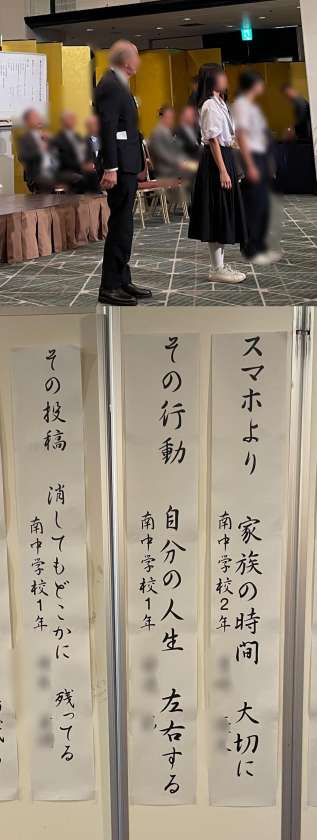 スマホより 家族の時間 大切に
南中学校2年
その行動 自分の人生 左右する
南中学校1年
その投稿 消してもどこかに 残ってる
南中学校1年